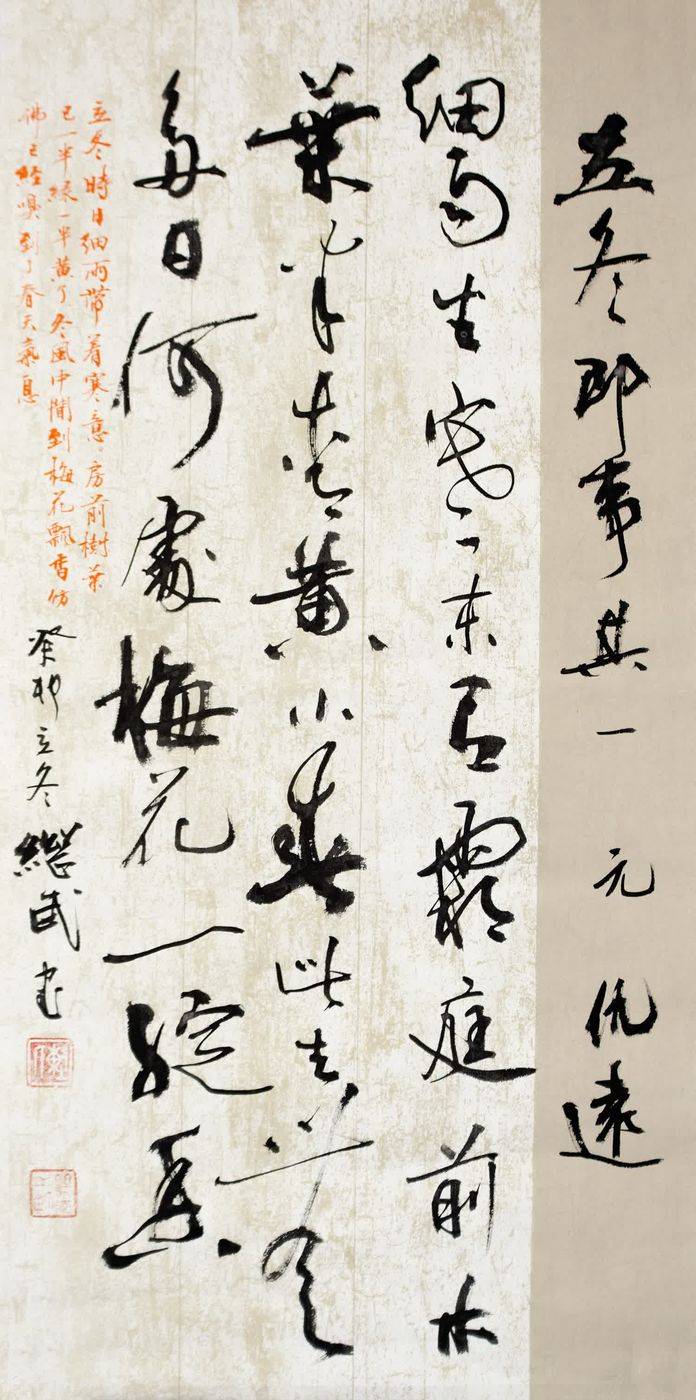 立冬即事其一 元 仇遠
細雨生寒未有霜庭前木
葉半青黄小春此去無
多日何處梅花一綻香
立冬時日細雨帶着寒意房前樹葉
已一半緑一半黄了冬風中聞到梅花飄香仿
佛已經嗅到了春天氣息
癸卯立冬繼武書